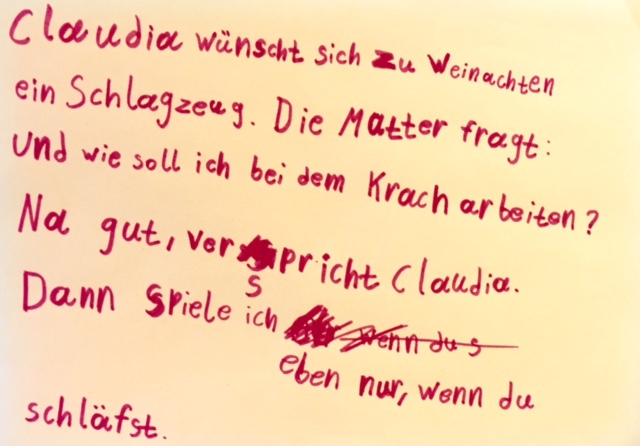 Claudia wünscht sich zu Weinachten
ein Schlagzeug. Die Mutter fragt:
und wie soll ich bei dem Krach arbeiten?
Na gut, verspricht Claudia.
Dann spiele ich wenn du s
eben nur, wenn du
schläfst.